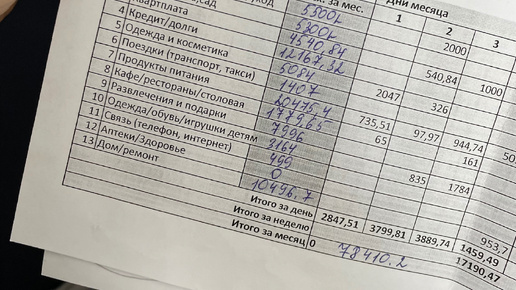 сад за мес. Дни месяца
1 2 3
2000
Квартплата 4540,84 540,84 1000
4 Кредит/долги 12167,32
5 Одежда и косметика 5084 2047 326
6 Поездки (транспорт, такси) 1407
7 Продукты питания 20475.4 735,51 97,97 944,74
8 Кафе/рестораны/столовая 65 161
9 Развлечения и подарки 7996
10 Одежда/обувь/игрушки детям 3164 835 1784
11 Связь (телефон, интернет) 499
12 Аптеки/Здоровье 0
13 Дом/ремонт 10496.7 953,7
Итого за день 2847,51 3799,81 3889,74 1459,49
Итого за неделю 17190,47
Итого за месяц 0 78410.2